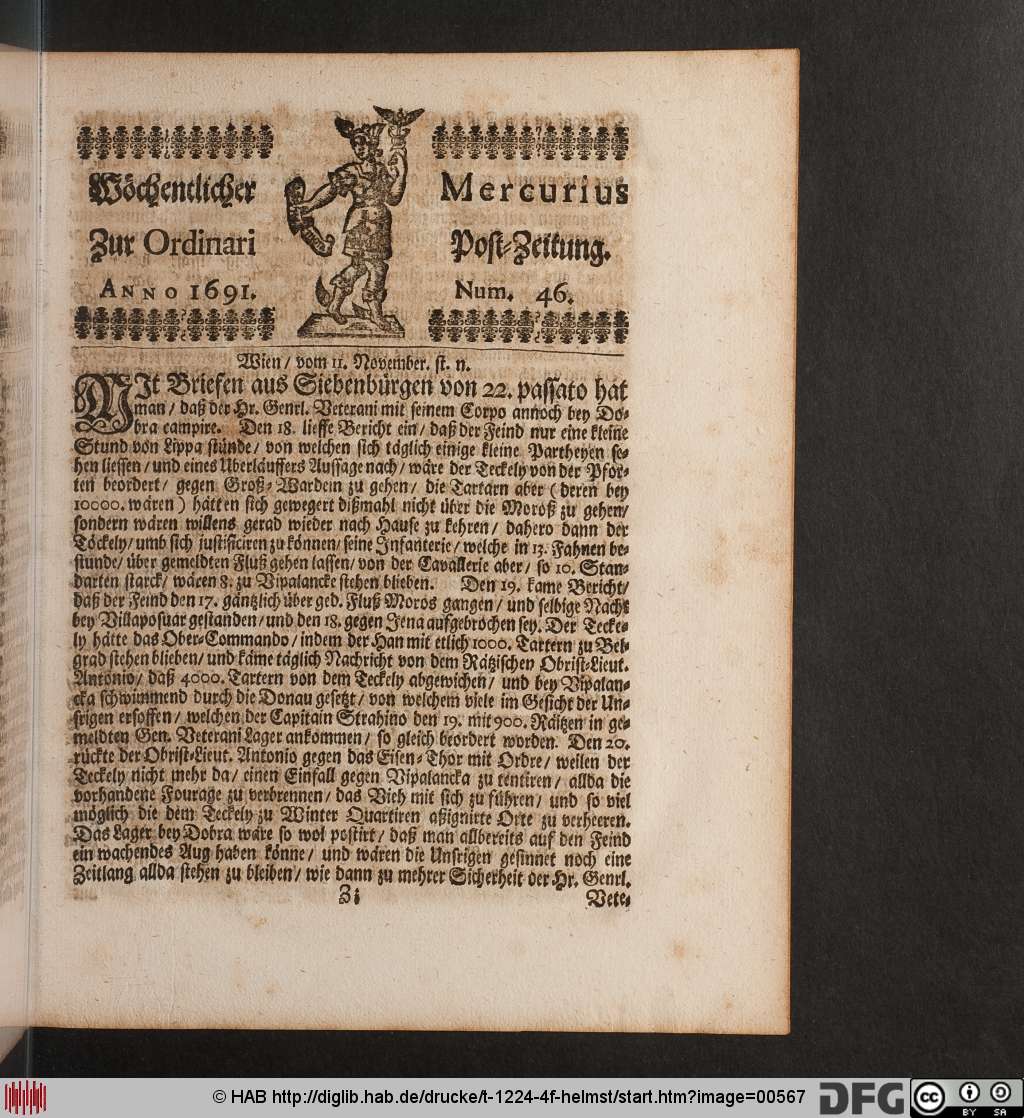 Wöchentlicher Mercurius
Zur Ordinari Post-Zeitung.
ANNO 1691. Num. 46.
Wien / vom 11. November. st. n.
MIt Briefen aus Siebenbürgen von 22. passato hat
man / daß der Hr. Genrl. Veterani mit seinem Corpo annoch bey Do-
bra campire. Den 18. lieffe Bericht ein / daß der Feind nur eine kleine
Stund von Lippa stünde / von welchen sich täglich einige kleine Partheyen se-
hen liessen / und eines Uberläuffers Aussage nach / wäre der Teckely von der Pfor-
ten beordert / gegen Groß-Wardein zu gehen / die Tartarn aber ( deren bey
10000. wären ) hätten sich gewegert dißmahl nicht über die Moroß zu gehen /
sondern wären willens gerad wieder nach Hause zu kehren / dahero dann der
Töckely / umb sich justificiren zu können / seine Infanterie / welche in 13. Fahnen be-
stunde / über gemeldten Fluß gehen lassen / von der Cavallerie aber / so 10. Stan-
darten starck / wären 8. zu Vipalancke stehen blieben. Den 19. kame Bericht /
daß der Feind den 17. gäntzlich über ged. Fluß Moros gangen / und selbige Nacht
bey Villaposuar gestanden / und den 18. gegen Jena aufgebrochen sey. Der Tecke-
ly hätte das Ober-Commando / indem der Han mit etlich 1000. Tartern zu Bel-
grad stehen blieben / und käme täglich Nachricht von dem Rätzischen Obrist-Lieut.
Antonio / daß 4000. Tartern von dem Teckely abgewichen / und bey Vipalan-
cka schwimmend durch die Donau gesetzt / von welchem viele im Gesicht der Un-
srigen ersoffen / welchen der Capitain Strahino den 19. mit 900. Räitzen in ge-
meldten Gen. Veterani Lager ankommen / so gleich beordert worden. Den 20.
rückte der Obrist-Lieut. Antonio gegen das Eisen-Thor mit Ordre / weilen der
Teckely nicht mehr da / einen Einfall gegen Vipalancka zu tentiren / allda die
vorhandene Fourage zu verbrennen / das Vieh mit sich zu führen / und so viel
möglich die dem Teckely zu Winter Quartiren aßignirte Orte zu verheeren.
Das Lager bey Dobra wäre so wol postirt / daß man allbereits auf den Feind
ein wachendes Aug haben könne / und wären die Unsrigen gesinnet noch eine
Zeitlang allda stehen zu bleiben / wie dann zu mehrer Sicherheit der Hr. Genrl.
Zz Vete-
© HAB http://diglib.hab.de/drucke/t-1224-4f-helmst/start.htm?image=00567
DFG
cc BY SA